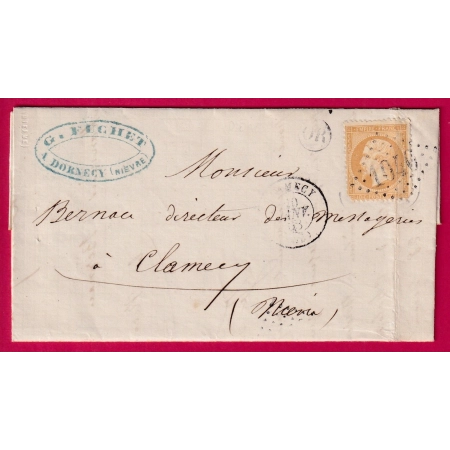 G. FICHET
A DORNECY (NIÈVRE)
OR
Monsieur
MECY
Bernace directeur des messageries
à Clamecy
(Nievre)